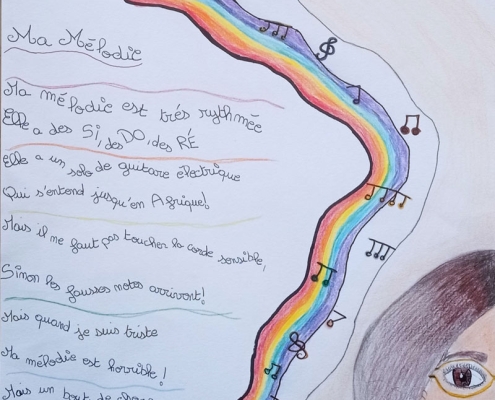 Ma Mélodie
Ma mélodie est trés rythmée
Elle a des SI, des DO, des RÉ
Elle a un solo de guitare électrique
Qui s'entend jusqu'en Afrique!
Mais il me faut pas toucher la corde sensible,
Sinon les fausses notes arrivent!
Mais quand je suis triste
Ma mélodie est horrible!
Mais un bout de